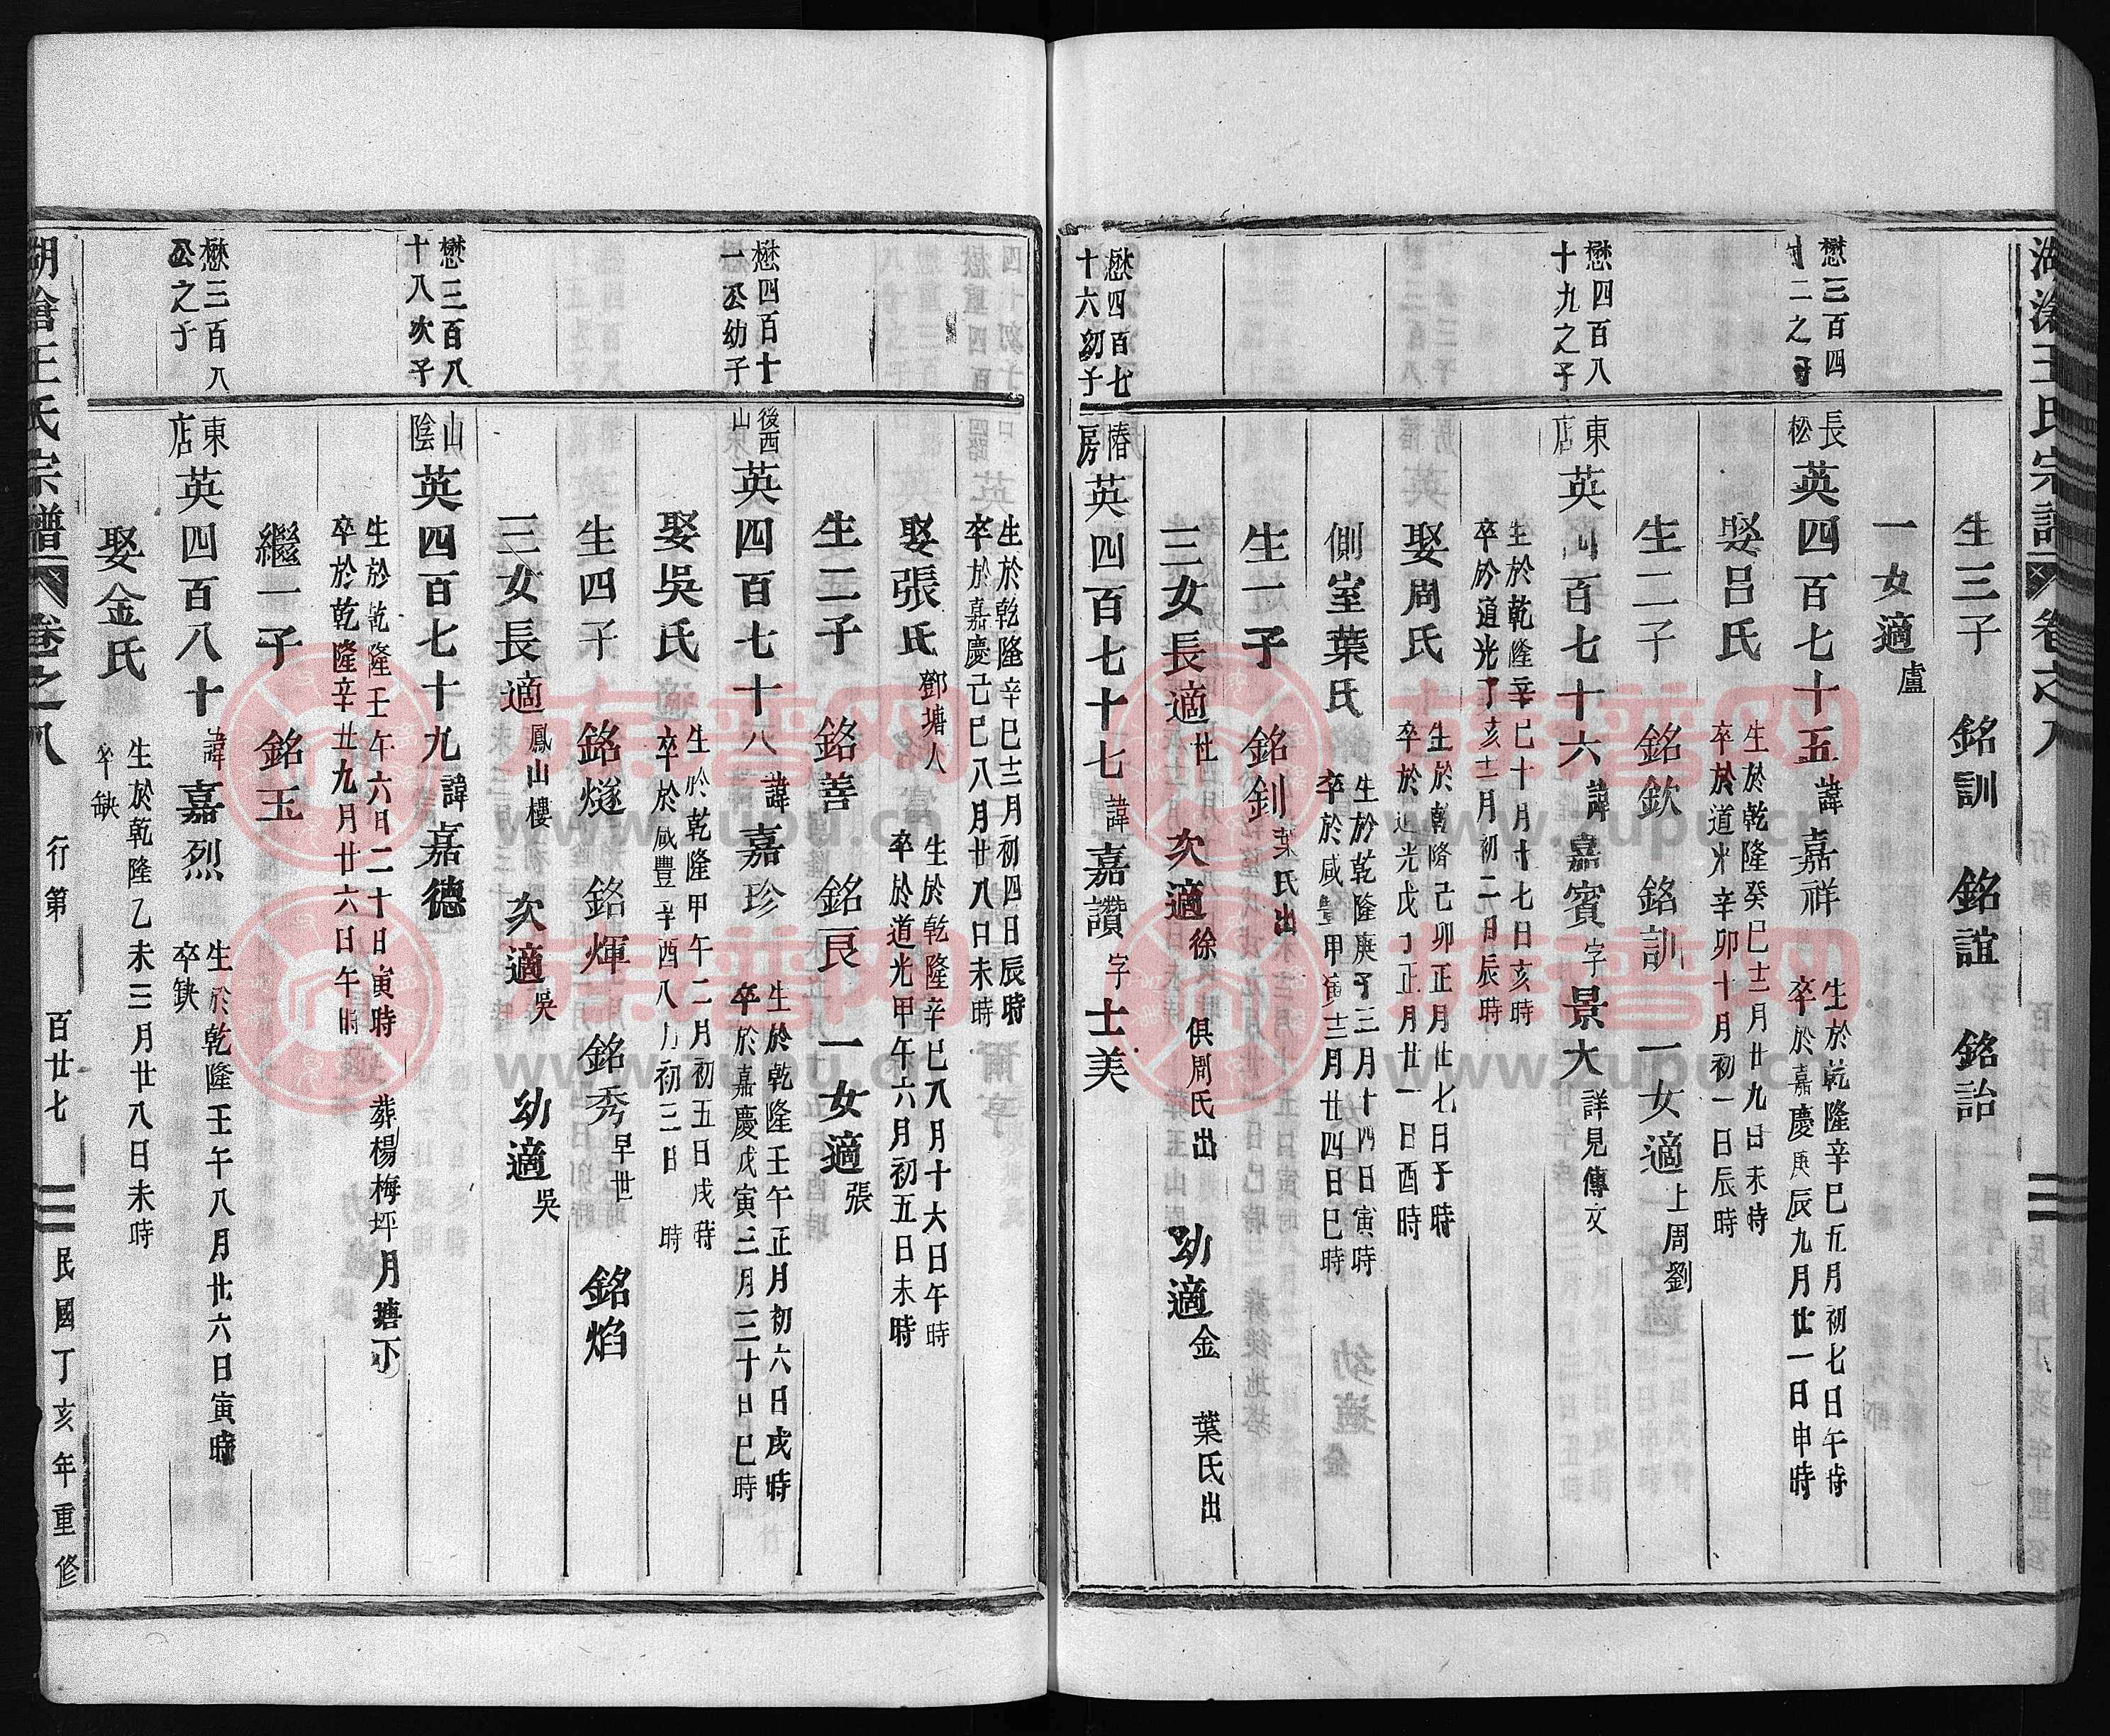 生三子 銘訓 銘誼 銘詒
一女適盧
懋三百四
十二之子
長松 英四百七十五諱嘉祥
生於乾隆辛巳五月初七日午時
卒於嘉慶庚辰九月廿一日申時
娶呂氏
生於乾隆癸巳十二月廿九日未時
卒於道光辛卯十月初一日辰時
生二子 銘欽 銘訓 一女適上周劉
懋四百八
十九之子
東店 英四百七十六諱嘉賓字景大詳見傳文
生於乾隆辛巳十月十七日亥時
卒於道光丁亥十二月初二日辰時
娶周氏
生於乾隆己卯正月廿七日子時
卒於道光戊子正月廿一日酉時
側室葉氏
生於乾隆庚子三月十四日寅時
卒於咸豐甲寅十二月廿四日巳時
生一子 銘釗葉氏出
三女長適杜 次適徐 俱周氏出 幼適金 葉氏出
懋四百七
十六幼子
椿房 英四百七十七諱嘉讚字士美
生於乾隆辛巳十二月初四日辰時
卒於嘉慶己巳八月廿八日未時
娶張氏鄧塘人
生於乾隆辛巳八月十六日午時
卒於道光甲午六月初五日未時
生二子 銘善 銘良 一女適張
懋四百十
一公幼子
後西山 英四百七十八諱嘉珍
生於乾隆壬午正月初六日戌時
卒於嘉慶戊寅三月三十日巳時
娶吳氏
生於乾隆甲午二月初五日戌時
卒於咸豐辛酉八月初三日 時
生四子 銘燧 銘煇 銘秀早世 銘焰
三女長適鳳山樓 次適吳 幼適吳
懋三百八
十八次子
山陰 英四百七十九諱嘉德
生於乾隆壬午六月二十日寅時 葬楊梅坪月塘下
卒於乾隆辛丑九月廿六日午時
繼一子 銘玉
懋三百八
公之子
東店 英四百八十諱嘉烈
生於乾隆壬午八月廿六日寅時
卒缺
娶金氏
生於乾隆乙未三月廿八日未時
卒缺
湖滄王氏宗譜 卷之八 行第 百廿七 民國丁亥年重修
族譜网
www.zupu.cn